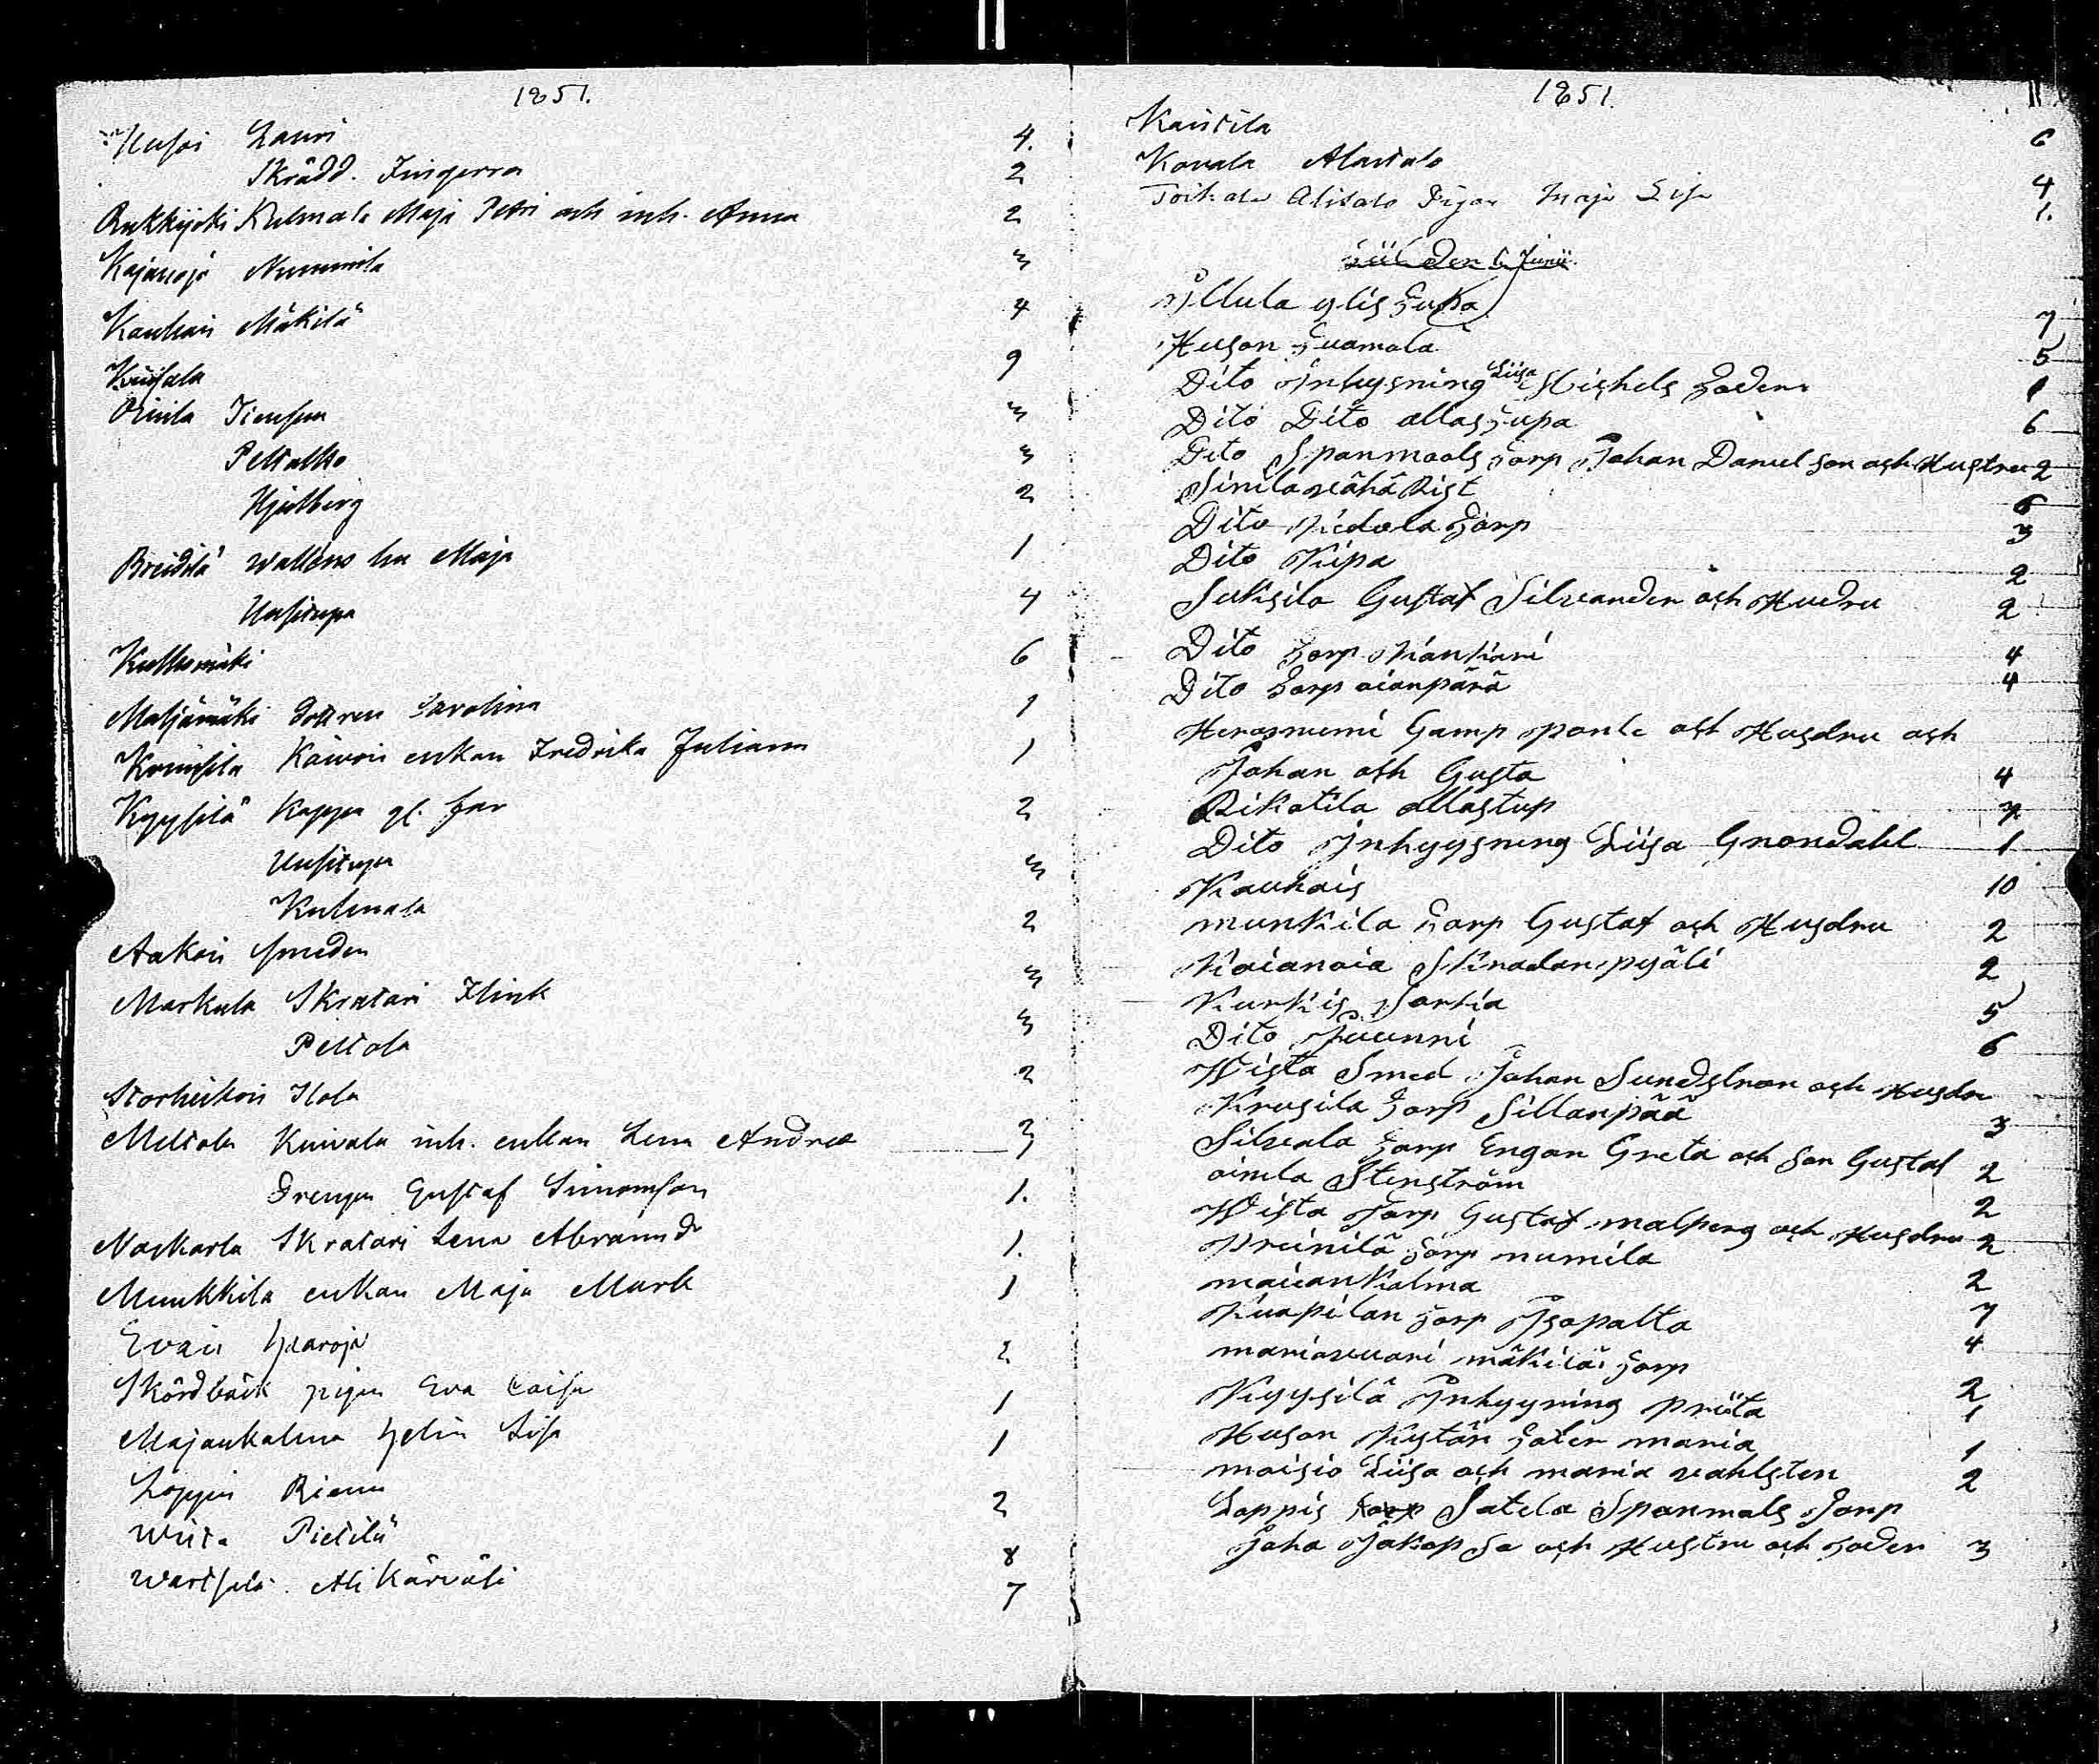 1851.
Husoi Lauri 4.
Skrädd. Jingerroa 2
Rukkijoki Kulmala Maja Petri och inh. Anna 2
Kajanoja Nummila 3
Kauhais Mäkilä 4
Krusala 9
Oinila Tienson 3
Peltalho 3
Hjelberg 2
Preidilä Walléns hu Maja 1
Uusitupa 4
Kulhomäki 6
Maljämäki dottren Carolina 1
Krouvila Kaivoin enkan Fredrika Juliana 1
Kyysilä Kappa gl. far 2
Uusitupa 3
Kulmala 2
Aakois smeden 3
Markula Skratari Flink 3
Peltola 2
Storheikois Ilola 2
Meltola Kuivala inh. enkan Lena Andrea 3
Drengen Gustaf Simonson 1.
Naskarla Skratari Lena Abramsdr 1.
Munkkila enkan Maja Mark 1
Eväis Haaroja 2
Skördbäck pigan Eva Caisa 1
Majankalma Helin Lisa 1
Loppis Riennu 2
Wista Pietilä 8
Wartsilä Ali Kärväsi 7
1851.
Kaitila 6
Kovala Alastalo 4
Toikala Alitalo Pigan Maja Lisa 1.
Till den 6 Junii
Yllula ylistupa 7
Huson Tuomola 5
Dito Inhysning Liisa Mishels Doder 1
Dito Dito allastupa 6
Dito Spanmaals Torp Johan Daniel son och Hustru 2
Sinila vähä Rist 6
Dito Niedola Torp 3
Dito Kipa 2
Suksila Gustaf Silvander och Hudru 2
Dito Torp Niankiani 4
Dito Torp oianpärä 4
Herosnumi Gamp ponle och Husdru och
Johan och Gusta 4
Rikatila allastup 7
Dito Inhyysning Liisa Gnondahl 1
Kauhais 10
munkila Torp Gustaf och Husdru 2
Kaianoia Skradan pyäli 2
Kurkis Torkia 5
Dito Juunni 6
Wista Smed Johan Sundstron och Husdru
Krusila Torp Sillanpää 3
Silvala Torp Engan Greta och son Gustaf 2
oinila Stenström 2
Wista Torp Gustaf malperg och Husdru 2
Preinilä Torp numila
maiian Kalma 2
Kuapilan Torp Isopalta 7
mariasvuori mäkilä Torp 4
Kyysilä Inhyyning priita 2
1
Huson Kystön Doter maria 1
moisio Liisa och maria vahlsten 2
Loppis Torp Satela Spanmals Torp
Joha Jakop So och Hustru och Doder 3